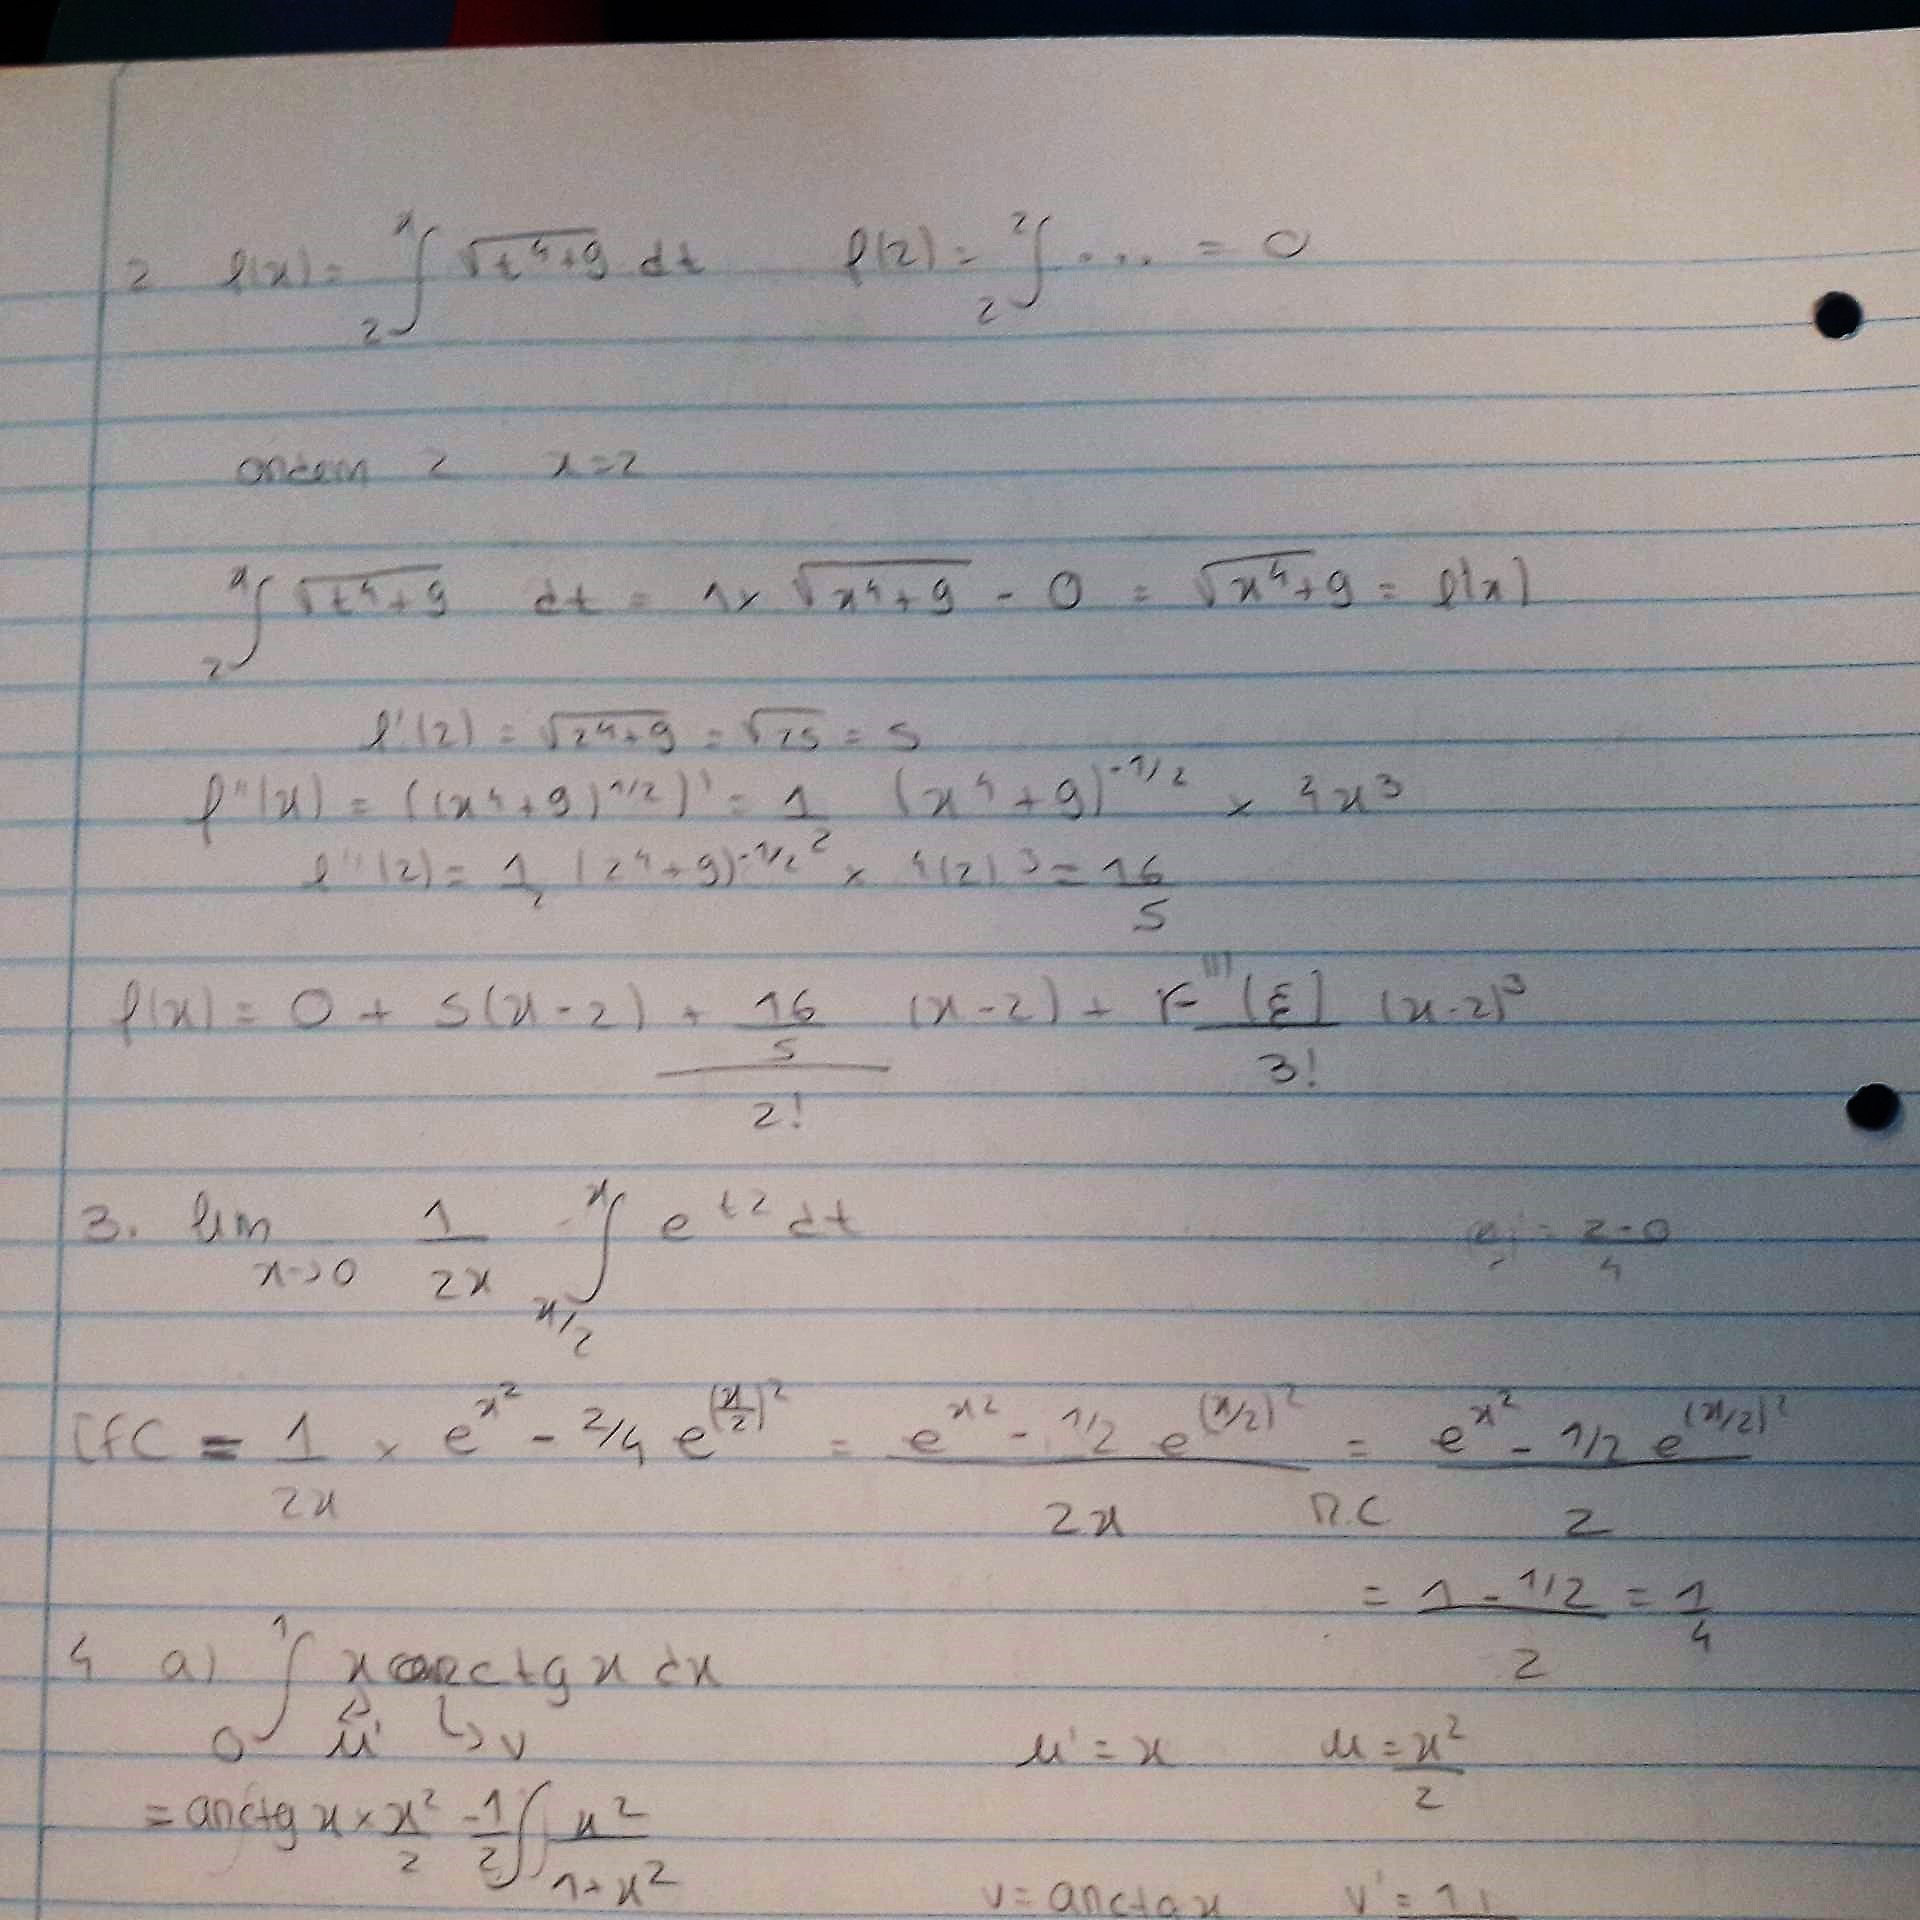 2 f(x) = ₂∫ˣ √(t⁴+9) dt f(2) = ₂∫² .... = 0
ordem 2 x=2
₂∫ˣ √(t⁴+9) dt = 1× √(x⁴+9) - 0 = √(x⁴+9) = f'(x)
f'(2) = √(2⁴+9) = √25 = 5
f''(x) = ((x⁴+9)^1/2)' = 1/2 (x⁴+9)^-1/2 × 4x³
f''(2) = 1/2 (2⁴+9)^-1/2 × 4(2)³ = 16/5
f(x) = 0 + 5(x-2) + (16/5)/2! (x-2) + F'''(ξ)/3! (x-2)³
3. lim x→0 1/2x x/2∫ˣ e^t2 dt
= (2-0)/4
TFC = 1/2x × e^x² - 2/4 e^(x/2)² = (e^x² - 1/2 e^(x/2)²)/2x = R.C (e^x² - 1/2 e^(x/2)²)/2
= (1 - 1/2)/2 = 1/4
4 a) ₀∫¹ x arctg x dx
u' v u' = x u = x²/2
= arctg x × x²/2 - 1/2 ∫ x²/(1+x²)
v = arctg x v' = 1